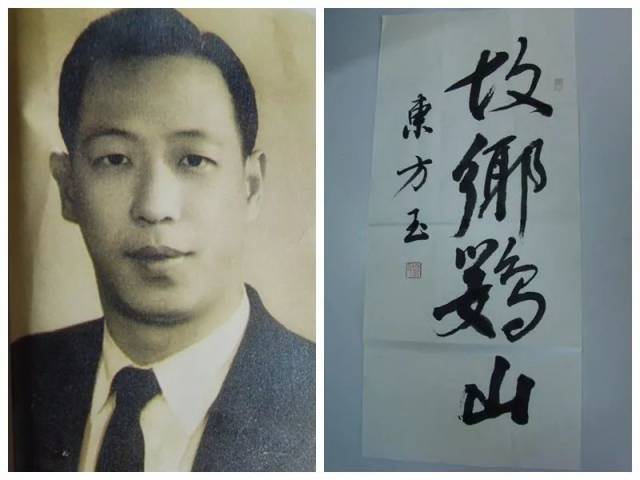 故鄉鸚山
東方玉